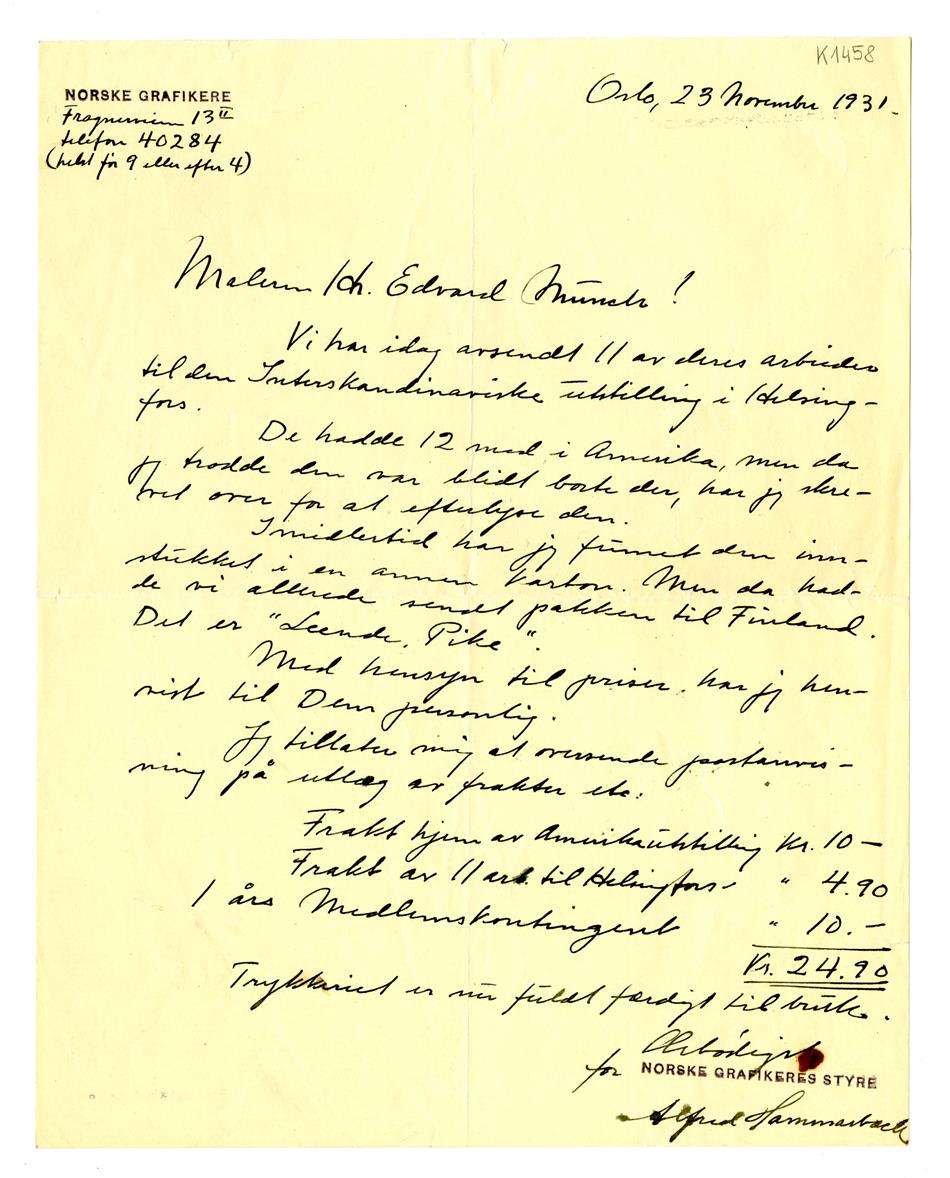 K1458
NORSKE GRAFIKERE
Frognerveien 13 II
telefon 40284
(helst før 9 eller efter 4)
Oslo, 23 November 1931.
Maleren Hr. Edvard Munch!
Vi har idag avsendt 11 av deres arbeider
til den Interskandinaviske utstilling i Helsing-
fors.
De hadde 12 med i Amerika, men da
jeg trodde den var blidt borte der, har jeg skre-
vet over for at efterlyse den.
Imidlertid har jeg funnet den inn-
stukket i en annen karton. Men da had-
de vi allerede sendt pakken til Finland.
Det er "Leende, Pike".
Med hensyn til priser, har jeg hen-
vist til Dem personlig.
Jeg tillater mig at oversende postanvis-
ning på utlæg av frakter etc.
Frakt hjem av Amerikautstilling Kr. 10 —
Frakt av 11 arb. til Helsingfors - " 4.90
1 års Medlemskontingent " 10.-
Kr. 24.90
Trykkeriet er nu fuldt færdigt til bruk.
Ærbødigst
for NORSKE GRAFIKERES STYRE
Alfred Hammarbeck